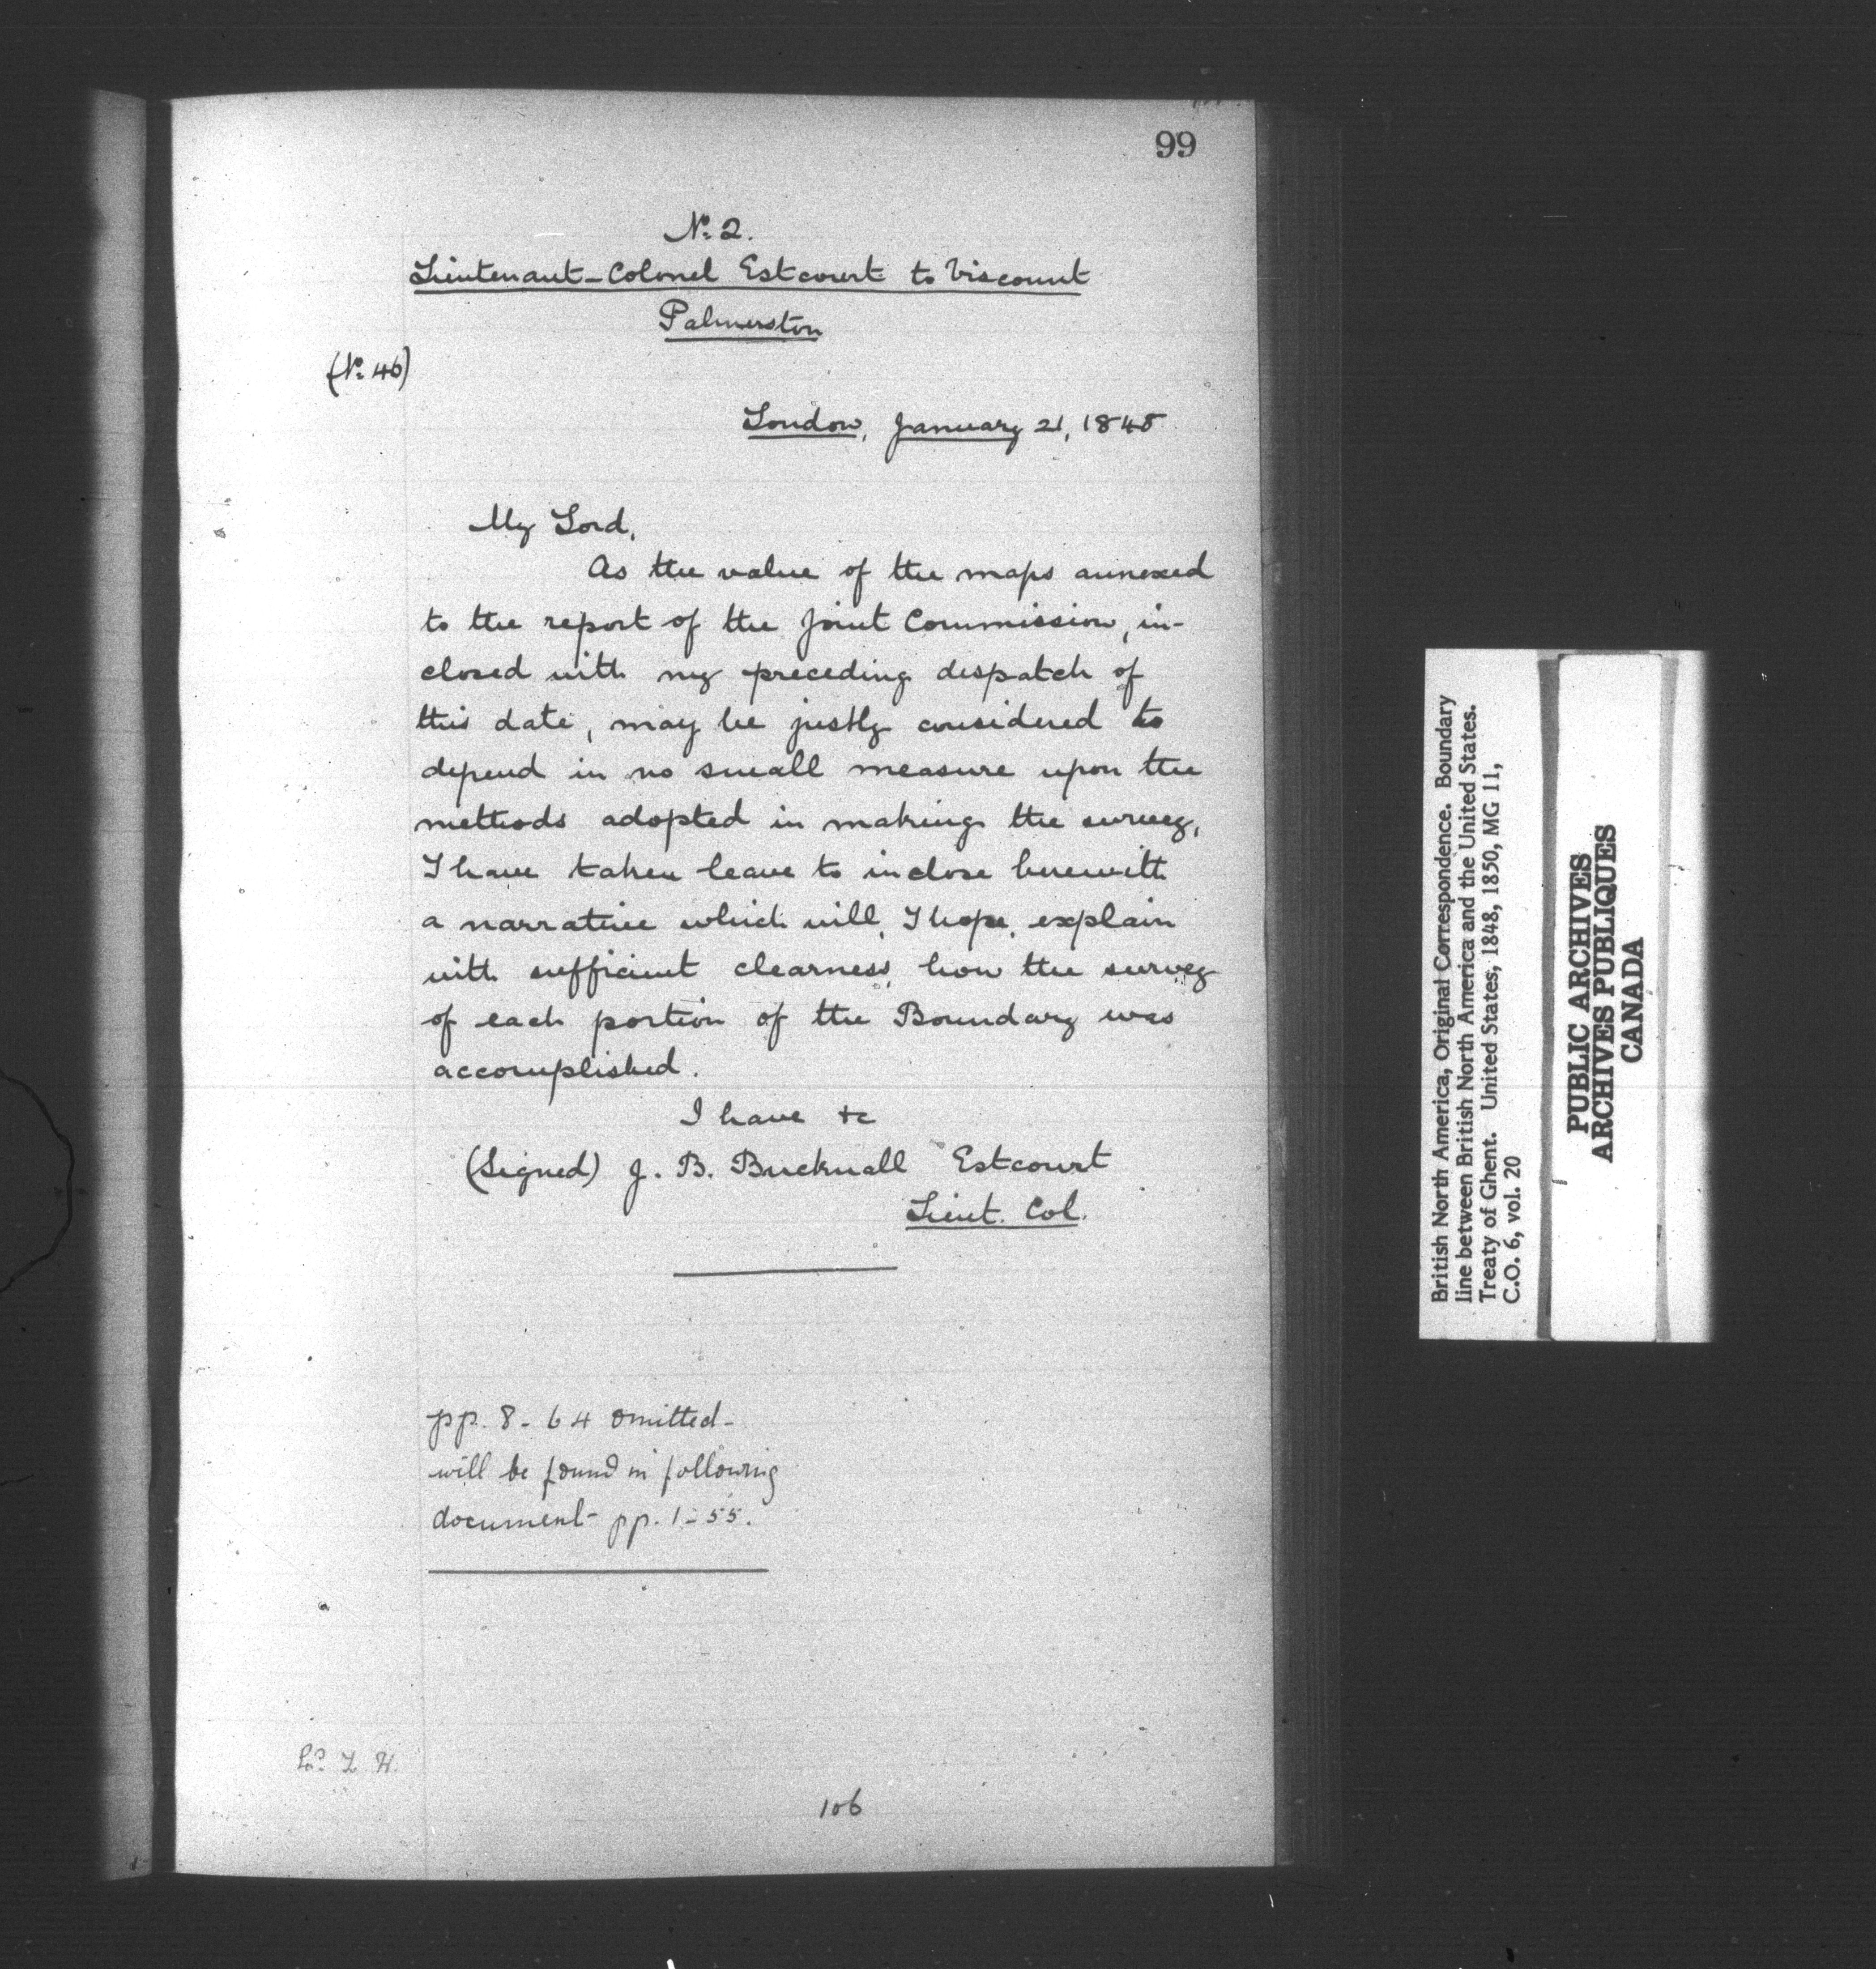 99
No. 2.
Lieutenant-Colonel Estcourt to Viscount
Palmerston
(No. 46)
London, January 21, 1848
My Lord,
As the value of the maps annexed
to the report of the Joint Commission, in-
closed with my preceding despatch of
this date, may be justly considered to
depend in no small measure upon the
methods adopted in making the survey,
I have taken leave to inclose herewith
a narrative which will, I hope, explain
with sufficient clearness, how the survey
of each portion of the Boundary was
accomplished.
I have &c
(Signed) J. B. Bucknall Estcourt
Lieut. Col.
pp. 8-64 omitted-
will be found in following
document- pp. 1-55.
106
British North America, Original Correspondence. Boundary
line between British North America and the United States.
Treaty of Ghent. United States, 1848, 1850, MG 11,
C.O. 6, vol. 20
PUBLIC ARCHIVES
ARCHIVES PUBLIQUES
CANADA